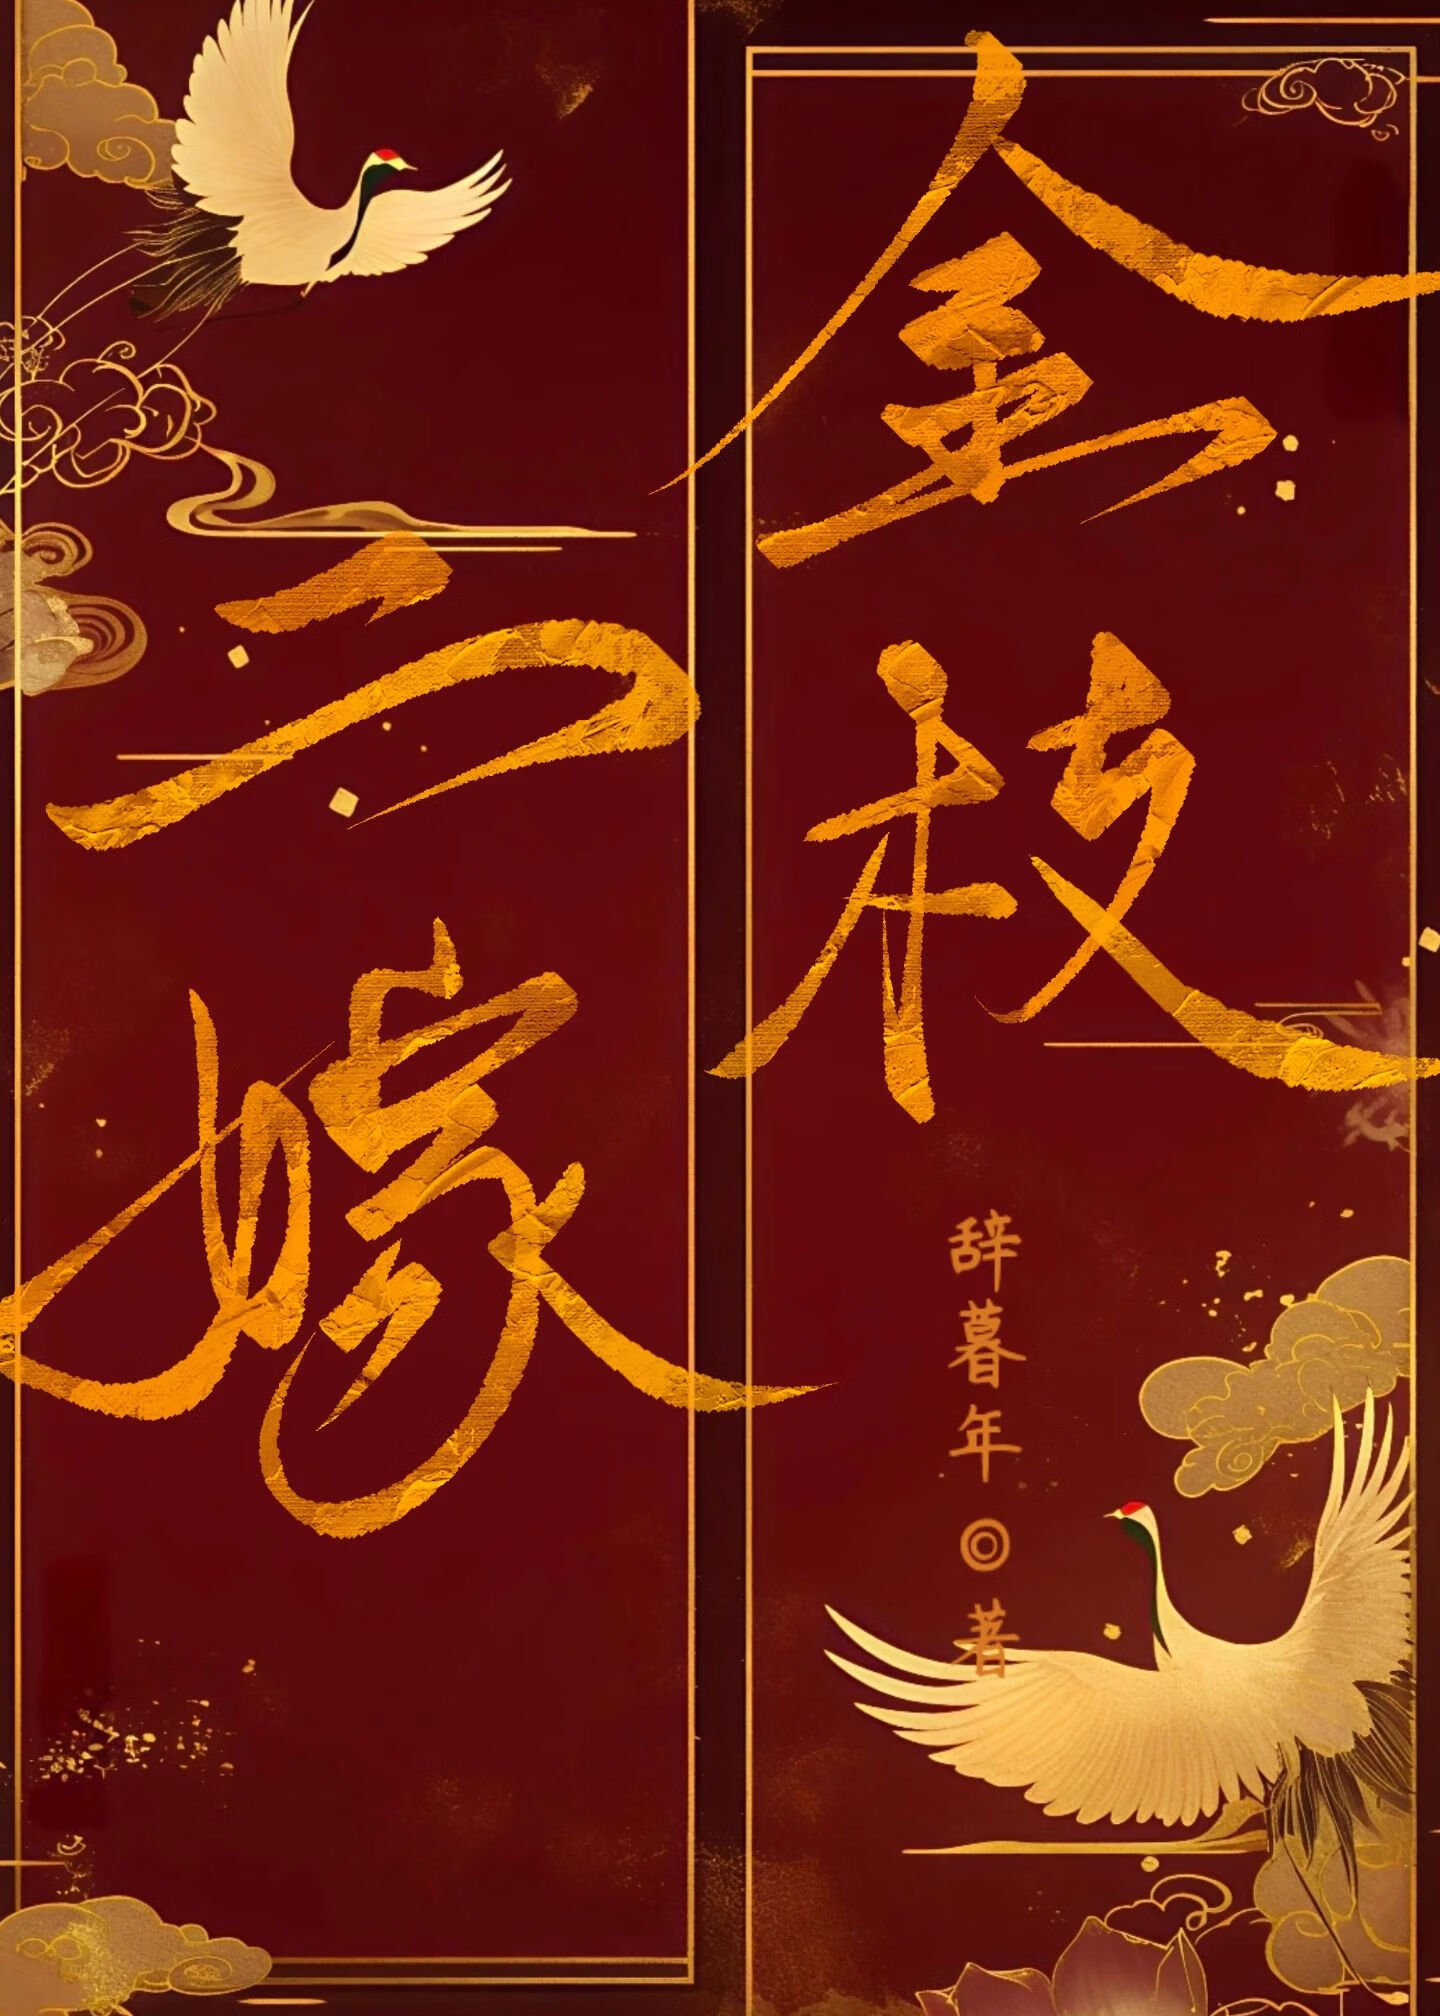 金枝
二嫁
辞暮年◎著